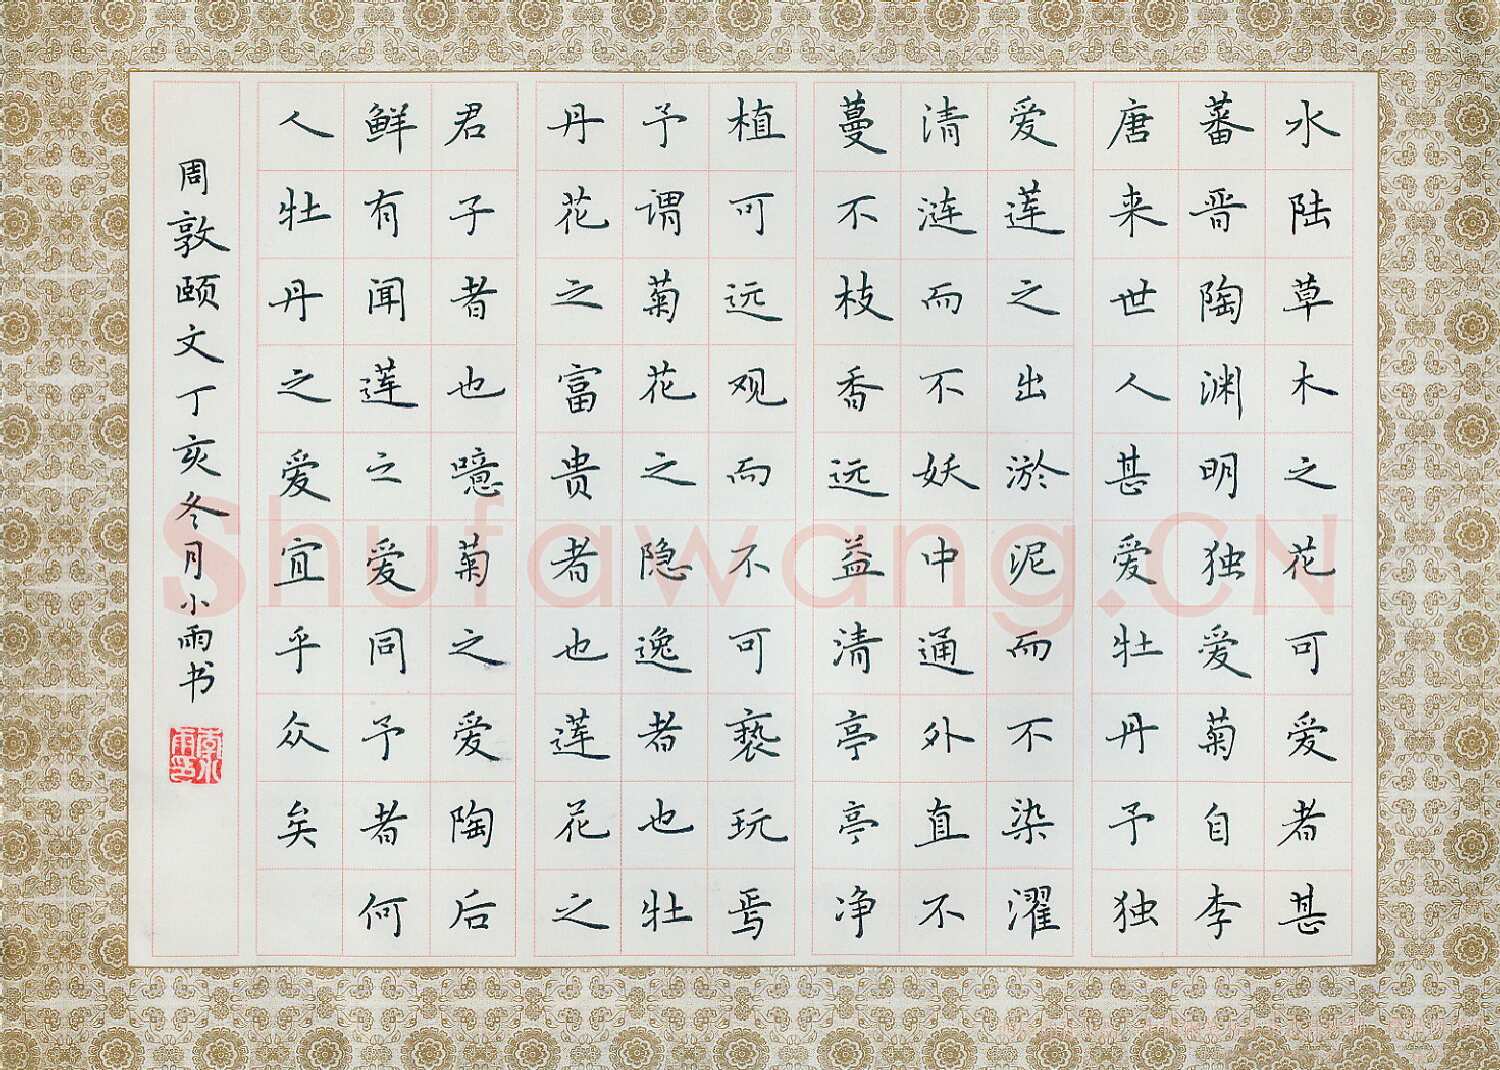 水陆草木之花可爱者甚
蕃晋陶渊明独爱菊自李
唐来世人甚爱牡丹予独
爱莲之出淤泥而不染濯
清涟而不妖中通外直不
蔓不枝香远益清亭亭净
植可远观而不可亵玩焉
予谓菊花之隐逸者也牡
丹花之富贵者也莲花之
君子者也噫菊之爱陶后
鲜有闻莲之爱同予者何
人牡丹之爱宜乎众矣
周敦颐文丁亥冬月小雨书
李小雨印
Shufawang.CN